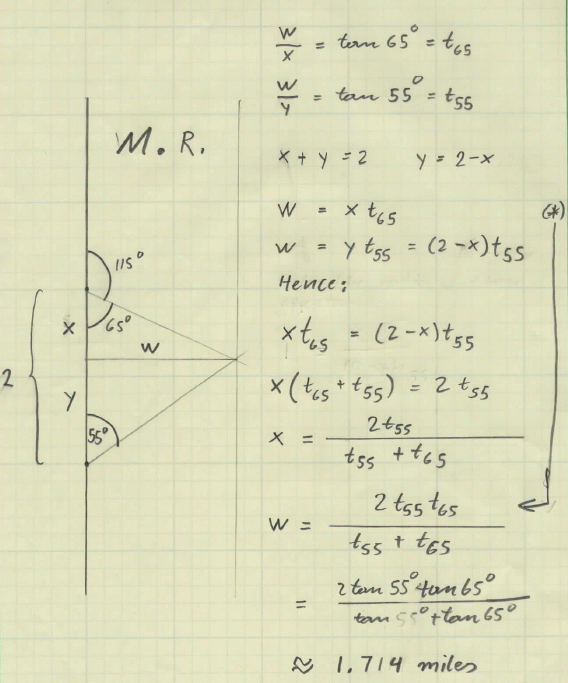 M. R.
115°
65°
X
W
2
Y
55°
W/X = tan 65° = t₆₅
W/Y = tan 55° = t₅₅
X + Y = 2   Y = 2-X
W = X t₆₅
W = Y t₅₅ = (2-X)t₅₅
(*)
Hence:
X t₆₅ = (2-X)t₅₅
X(t₆₅ + t₅₅) = 2 t₅₅
X = 2t₅₅ / t₅₅ + t₆₅
W = 2 t₅₅ t₆₅ / t₅₅ + t₆₅
= 2 tan 55° tan 65° / tan 55° + tan 65°
≈ 1.714 miles